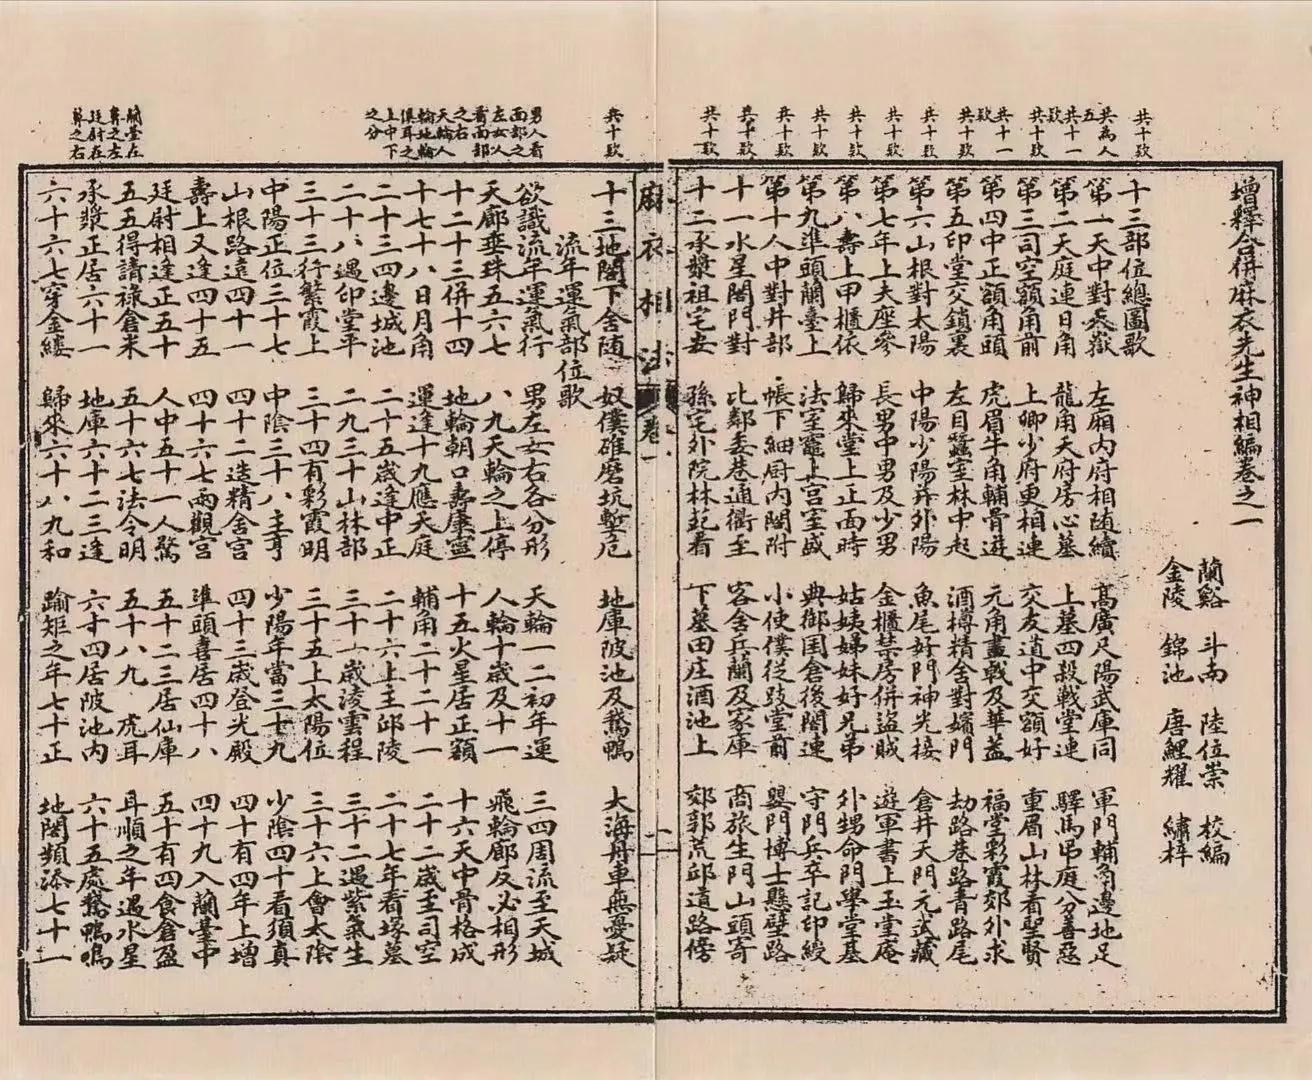 增釋合併麻衣先生神相編卷之一
蘭谿 斗南 陸位崇 校編
金陵 錦池 唐鯉耀 繡梓
共十致
十三部位總圖歌
共為人五
第一天中對天嶽 左廂內府相随續 高廣尺陽武庫同 軍門輔角邊地足
共十一致
第二天庭連日角 龍角天府房心墓 上墓四殺戰堂連 驛馬吊庭分善惡
共十致
第三司空額角前 上卿少府更相連 交友道中交額好 重眉山林看聖賢
共十一致
第四中正額角頭 虎眉牛角輔骨遊 元角畫戟及華蓋 福堂彩霞郊外求
共十致
第五印堂交鎖裏 左目蠶室林中起 酒樽精舍對嬪門 劫路巷路青路尾
共十致
第六山根對太陽 中陽少陽并外陽 魚尾奸門神光接 倉井天門元武藏
共十致
第七年上夫座參 長男中男及少男 金櫃禁房併盜賊 遊軍書上玉堂庵
共十致
第八壽上甲櫃依 歸來堂上正面時 姑姨姊妹好兄弟 外甥命門學堂基
共十致
第九準頭蘭臺上 法室竈上宮室盛 典御国倉後閣連 守門兵卒記印綬
共十致
第十人中對井部 帳下細厨內閣附 小使僕從跂堂前 嬰門博士懸壁路
共十致
十一水星閣門對 比鄰委巷通衢至 客舍兵蘭及家庫 商旅生門山頭寄
共十致
十二承漿祖宅安 孫宅外院林苑看 下墓田庄酒池上 郊郭荒邱道路傍
麻衣相法 卷一 二
共十致
十三地閣下舍随 奴僕碓磨坑塹危 地庫陂池及鵝鴨 大海舟車無憂疑
流年運氣部位歌
男人看面部之左女人看面部之右天輪人輪地輪俱耳之上中下之分
欲識流年運氣行 男左女右各分形 天輪一二初年運 三四周流至天城
天廊垂珠五六七 八九天輪之上停 人輪十歲及十一 飛輪廊反必相形
十二十三併十四 地輪朝口壽康寧 十五火星居正額 十六天中骨格成
十七十八日月角 運逢十九應天庭 輔角二十二十一 二十二歲至司空
二十三四邊城池 二十五歲逢中正 二十六上主邱陵 二十七年看塚墓
二十八遇印堂平 二九三十山林部 三十一歲淩雲程 三十二遇紫氣生
三十三行繁霞上 三十四有彩霞明 三十五上太陽位 三十六上會太陰
中陽正位三十七 中陰三十八主亨 少陽年當三十九 少陰四十看須真
山根路遠四十一 四十二造精舍宮 四十三歲登光殿 四十有四年上增
壽上又逢四十五 四十六七兩觀宮 準頭喜居四十八 四十九入蘭臺中
蘭臺在鼻之左廷尉在鼻之右
廷尉相逢正五十 人中五十一人驚 五十二三居仙庫 五十有四食倉盈
五五得請祿倉米 五十六七法令明 五十八九虎耳 耳順之年遇水星
承漿正居六十一 地庫六十二三逢 六十四居陂池內 六十五處鵝鴨鳴
六十六七穿金縷 歸來六十八九和 踰矩之年七十正 地閣頻添七十一